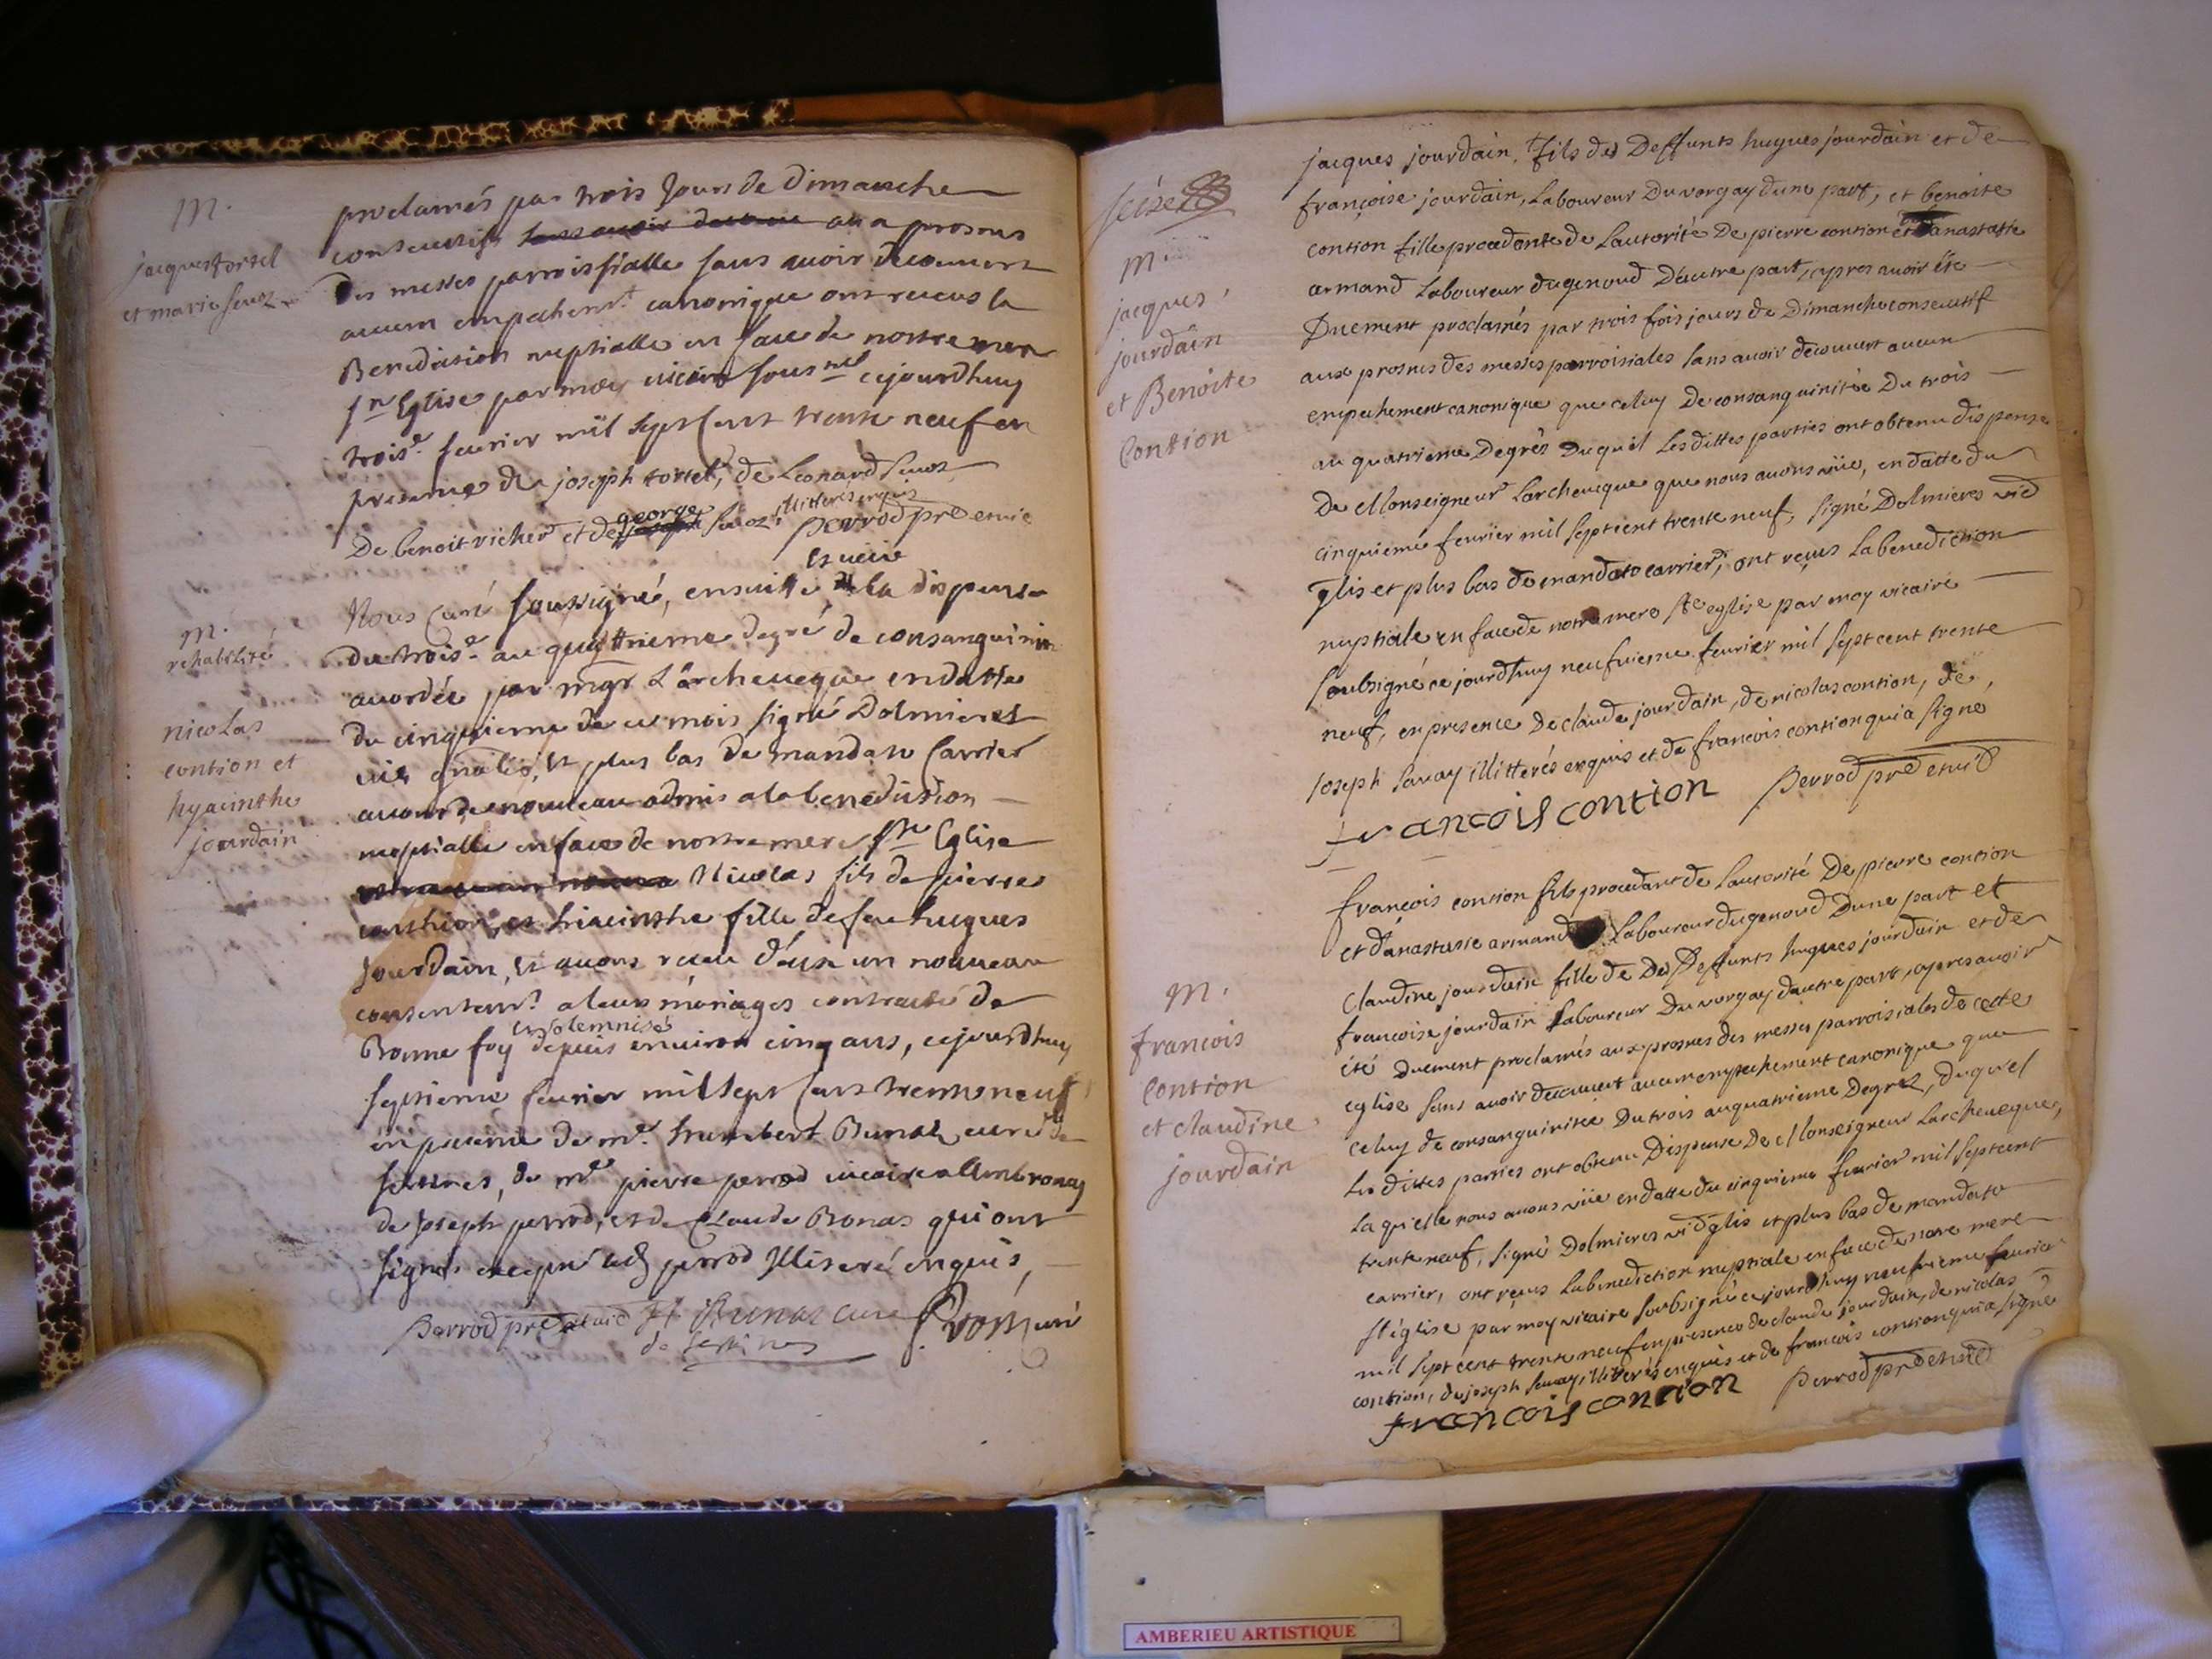 M.
jacques tortel
et marie seuoz
proclamés par trois Jours de Dimanche
consecutifs sans auoir decouuu aux prosnes
des messes parroissialle sans auoir decouuert
aucun empechemt canonique ont receus la
Benediction nuptialle en face de nostre mere
Ste Eglise par moy vicaire soussné cejourdhuy
troise feurier mil sept cent trente neuf en
presence de joseph tortel, de Leonard seuoz
De benoit richerd et de george seuoz illitterés enquis
Perrod pre et vic
M.
rehabilité
nicolas
contion et
hyacinthe
jourdain
et ueüe
Nous Curé soussigné, ensuitte de la dispense
du troise au quattrieme degré de consanguinité
accordée par mgr L'archeueque en datte
du cinquieme de ce mois signé Dolmieres
vic gnalis, et plus bas de mandato Carrier
auons de nouueau admis a la benediction
nuptialle en face de nostre mere Ste Eglise
Nicolas fils de pierre
conthion, et hiacinthe fille de feu hugues
Jourdain, et auons receu d'eux un nouueau
consentemt a leurs mariages contracté de
et solemnisé
Bonne foy depuis enuiron cinq ans, cejourdhuy
septieme feurier mil sept cent trente neuf
en presence de mre humbert Bunaz curé de
, de mre pierre perrod vicaire a Ambronay
de Joseph perrod, et de Claude Bonas qui ont
signés excepté led perrod Illiteré enquis,
Perrod pre et vic H Bunaz curé
curé
seize
M.
jacques
jourdain
et Benoite
Contion
jacques jourdain, fils des Deffunts hugues jourdain et de
françoise jourdain, Laboureur du vorgay d'une part, et benoite
contion fille procedante de Lautorité De pierre contion et danastasie
armand Laboureur du genoud D'autre part, apres auoir été
Duement proclamés par trois fois jours de Dimanche consecutif
aux prosnes des messes parroisiales sans auoir decouuert aucun
empechement canonique que celuy De consanguinitée Du trois
au quatrieme Degrès Duquel Lesdittes parties ont obtenu dispense
De Monseigneur Larcheueque que nous auons vüe, en datte du
cinquieme feurier mil sept cent trente neuf, signé Dolmieres vic
glis et plus bas de mandato carrier, ont reçus La benediction
nuptiale en face de notre mere ste eglise par moy vicaire
soubsigné ce jourd'huy neufuieme feurier mil sept cent trente
neuf, en presence De claude jourdain, de nicolas contion, de
joseph sauay illitterés enquis et de francois contion qui a signé
francois contion Perrod pre et vic
M.
francois
Contion
et claudine
jourdain
francois contion fils procedant de Lautorité De pierre contion
et d'anastasie armand Laboureur du genoud Dune part et
Claudine jourdain fille de Des Deffunts hugues jourdain et de
francoise jourdain Laboureur Du vorgay dautre part, apres auoir
été Duement proclamés aux prosnes des messes parroisiales de cette
eglise sans auoir decouuert aucun empechement canonique que
celuy de consanguinitée Du trois au quatrieme Degrez, duquel
Les dittes parties ont obtenu Dispense De Monseigneur Larcheueque,
Laquelle nous auons vüe en datte du cinquieme feurier mil sept cent
trente neuf, signé Dolmieres vic glis et plus bas de mandato
carrier, ont reçus La benediction nuptiale en face de notre mere
ste eglise par moy vicaire soubsigné ce jourd'huy neufuieme feurier
mil sept cent trente neuf en presence de claude jourdain, de nicolas
contion, de joseph sauay illiterés enquis et de francois contion qui a signé
francois contion Perrod pre et vic
AMBERIEU ARTISTIQUE